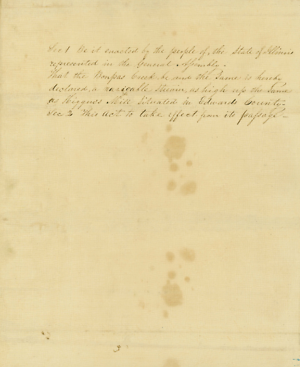 Sec 1 Be it enacted by the people of the State of Illinois
represented in the General Assembly.
That the Bonpas Creek be and the Same is hereby
declared a navigable Stream, as high up the Same
as Higgens Mill Situated in Edwards County
Sec 2 This act to take effect from its passage